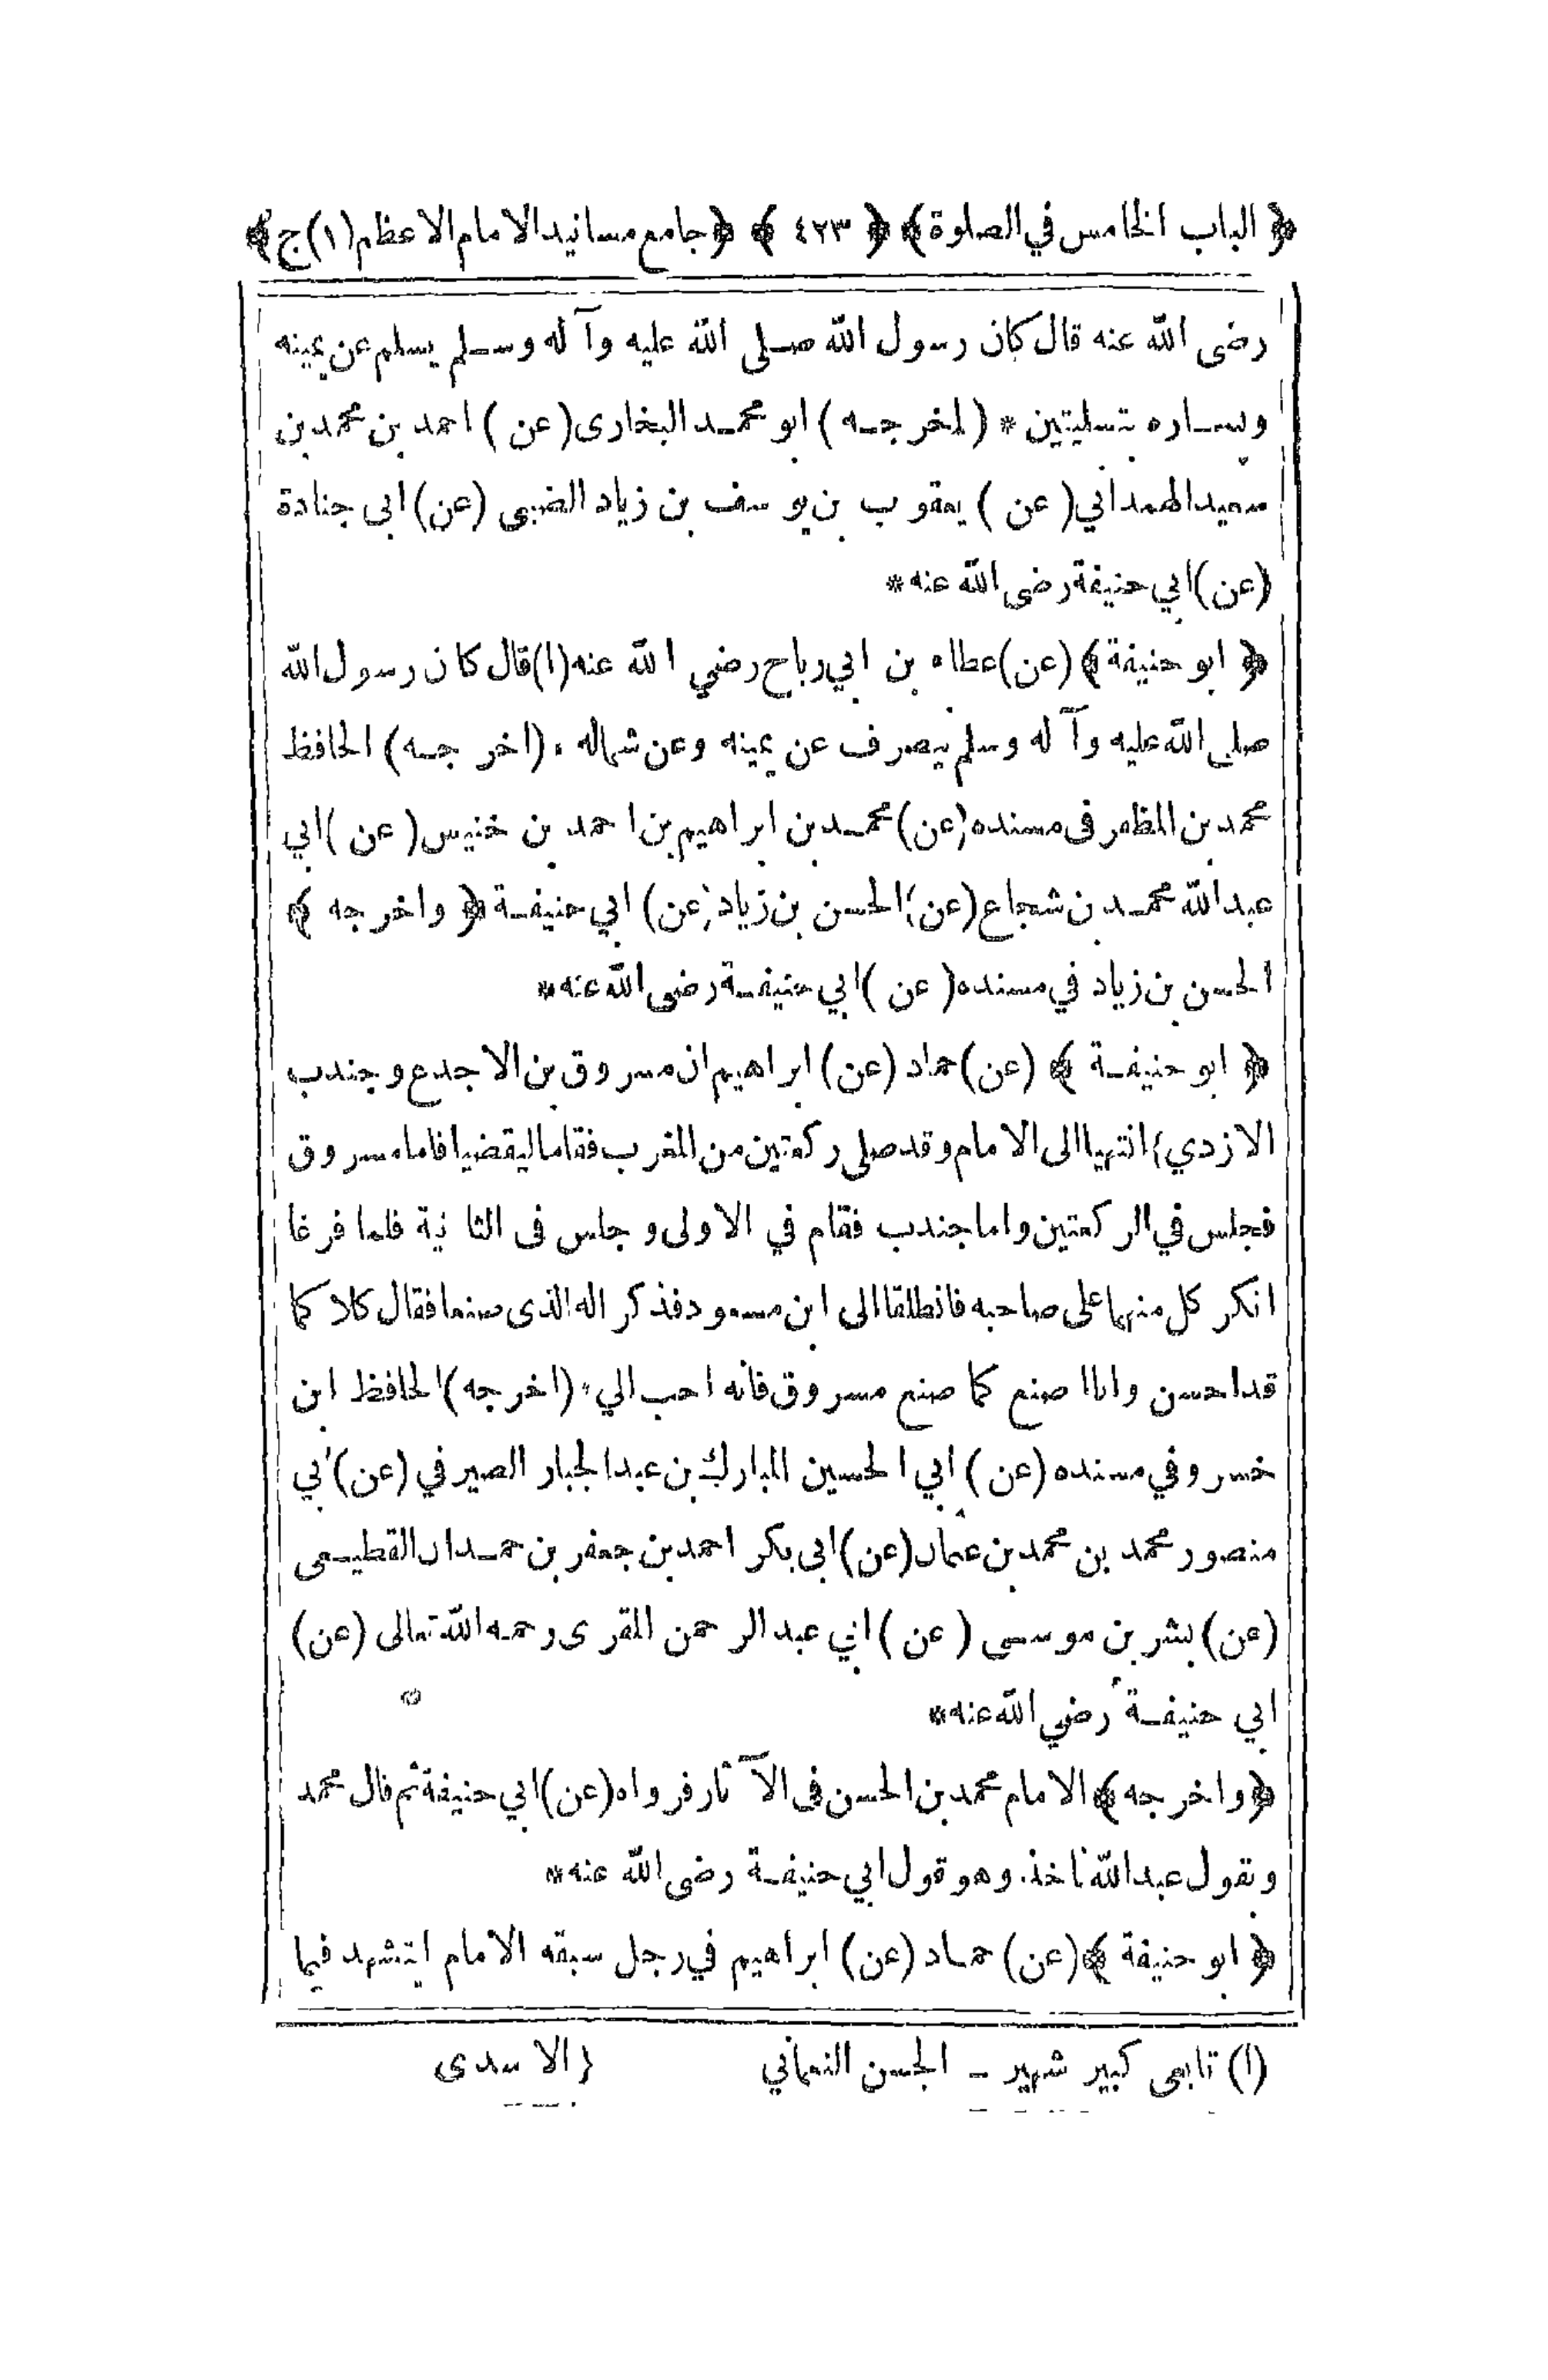 ﴿ الباب الخامس في الصلوة ﴾ ﴿ ٤٢٣ ﴾ ﴿ جامع مسانيد الامام الاعظم (١) ج ﴾
رضى الله عنه قال كان رسول الله صلى الله عليه وآله وسلم يسلم عن يمينه
ويساره تسليتين * (اخرجه) ابو محمد البخارى (عن) احمد بن محمد بن
سعيد الهمداني (عن) يعقوب بن يوسف بن زياد الضبى (عن) ابى جنادة
(عن) ابي حنيفة رضى الله عنه *
﴿ ابو حنيفة ﴾ (عن) عطاء بن ابي رباح رضي الله عنه (١) قال كان رسول الله
صلى الله عليه وآله وسلم ينصرف عن يمينه وعن شماله . (اخرجه) الحافظ
محمد بن المظفر فى مسنده (عن) محمد بن ابراهيم بن احمد بن خنيس (عن) ابي
عبد الله محمد بن شجاع (عن) الحسن بن زياد (عن) ابي حنيفة ﴿ واخرجه ﴾
الحسن بن زياد في مسنده (عن) ابي حنيفة رضى الله عنه *
﴿ ابو حنيفة ﴾ (عن) حماد (عن) ابراهيم ان مسروق بن الاجدع وجندب
الازدي } انتهيا الى الامام وقد صلى ركعتين من المغرب فقاما ليقضيا فاما مسروق
فجلس في الركعتين واما جندب فقام في الاولى وجلس فى الثانية فلما فرغا
انكر كل منهما على صاحبه فانطلقا الى ابن مسعود فذكرا له الذى صنعا فقال كلا كما
قد احسن وانا اصنع كما صنع مسروق فانه احب الي * (اخرجه) الحافظ ابن
خسرو في مسنده (عن) ابي الحسين المبارك بن عبد الجبار الصيرفي (عن) ابي
منصور محمد بن محمد بن عثمان (عن) ابى بكر احمد بن جعفر بن حمدان القطيعى
(عن) بشر بن موسى (عن) ابي عبد الرحمن المقرى رحمه الله تعالى (عن)
ابي حنيفة رضي الله عنه *
﴿ واخرجه ﴾ الامام محمد بن الحسن فى الآثار فرواه (عن) ابي حنيفة ثم قال محمد
وبقول عبد الله ناخذ . وهو قول ابي حنيفة رضى الله عنه *
﴿ ابو حنيفة ﴾ (عن) حماد (عن) ابراهيم في رجل سبقه الامام ايتشهد فيما
(١) تابعى كبير شهير - الحسن النعماني } الاسدى